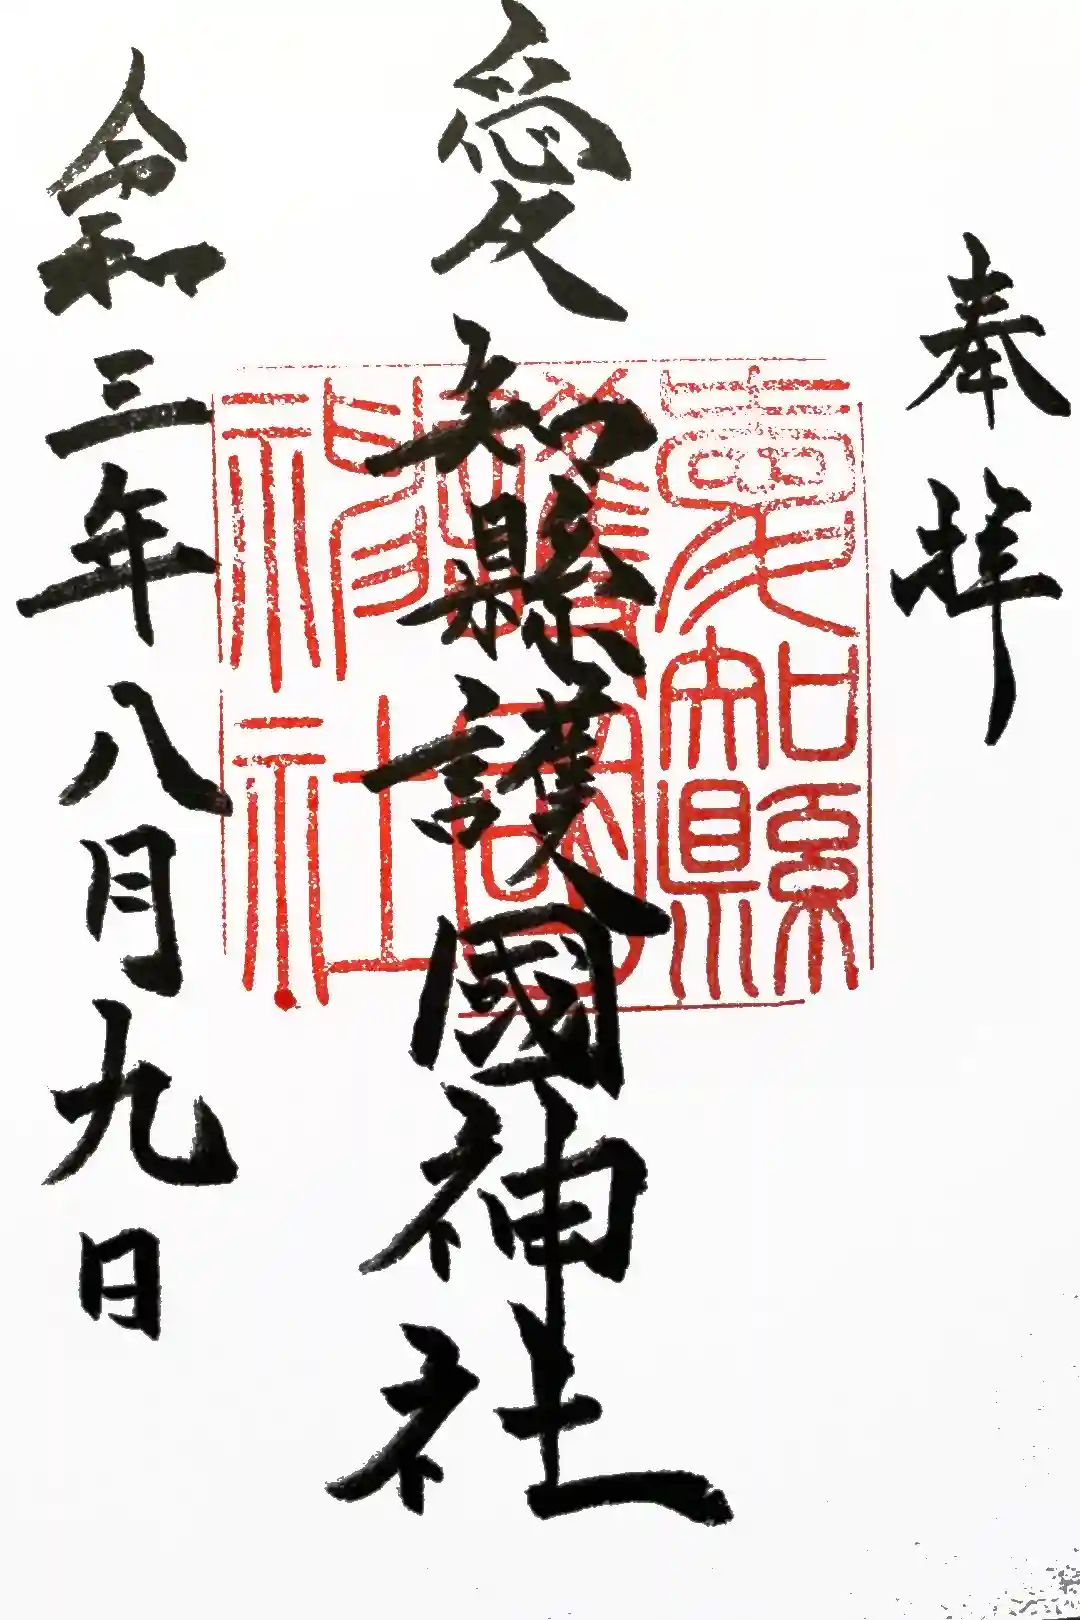 奉拝
愛知縣護國神社
愛知縣
護國
神社
令和三年八月九日